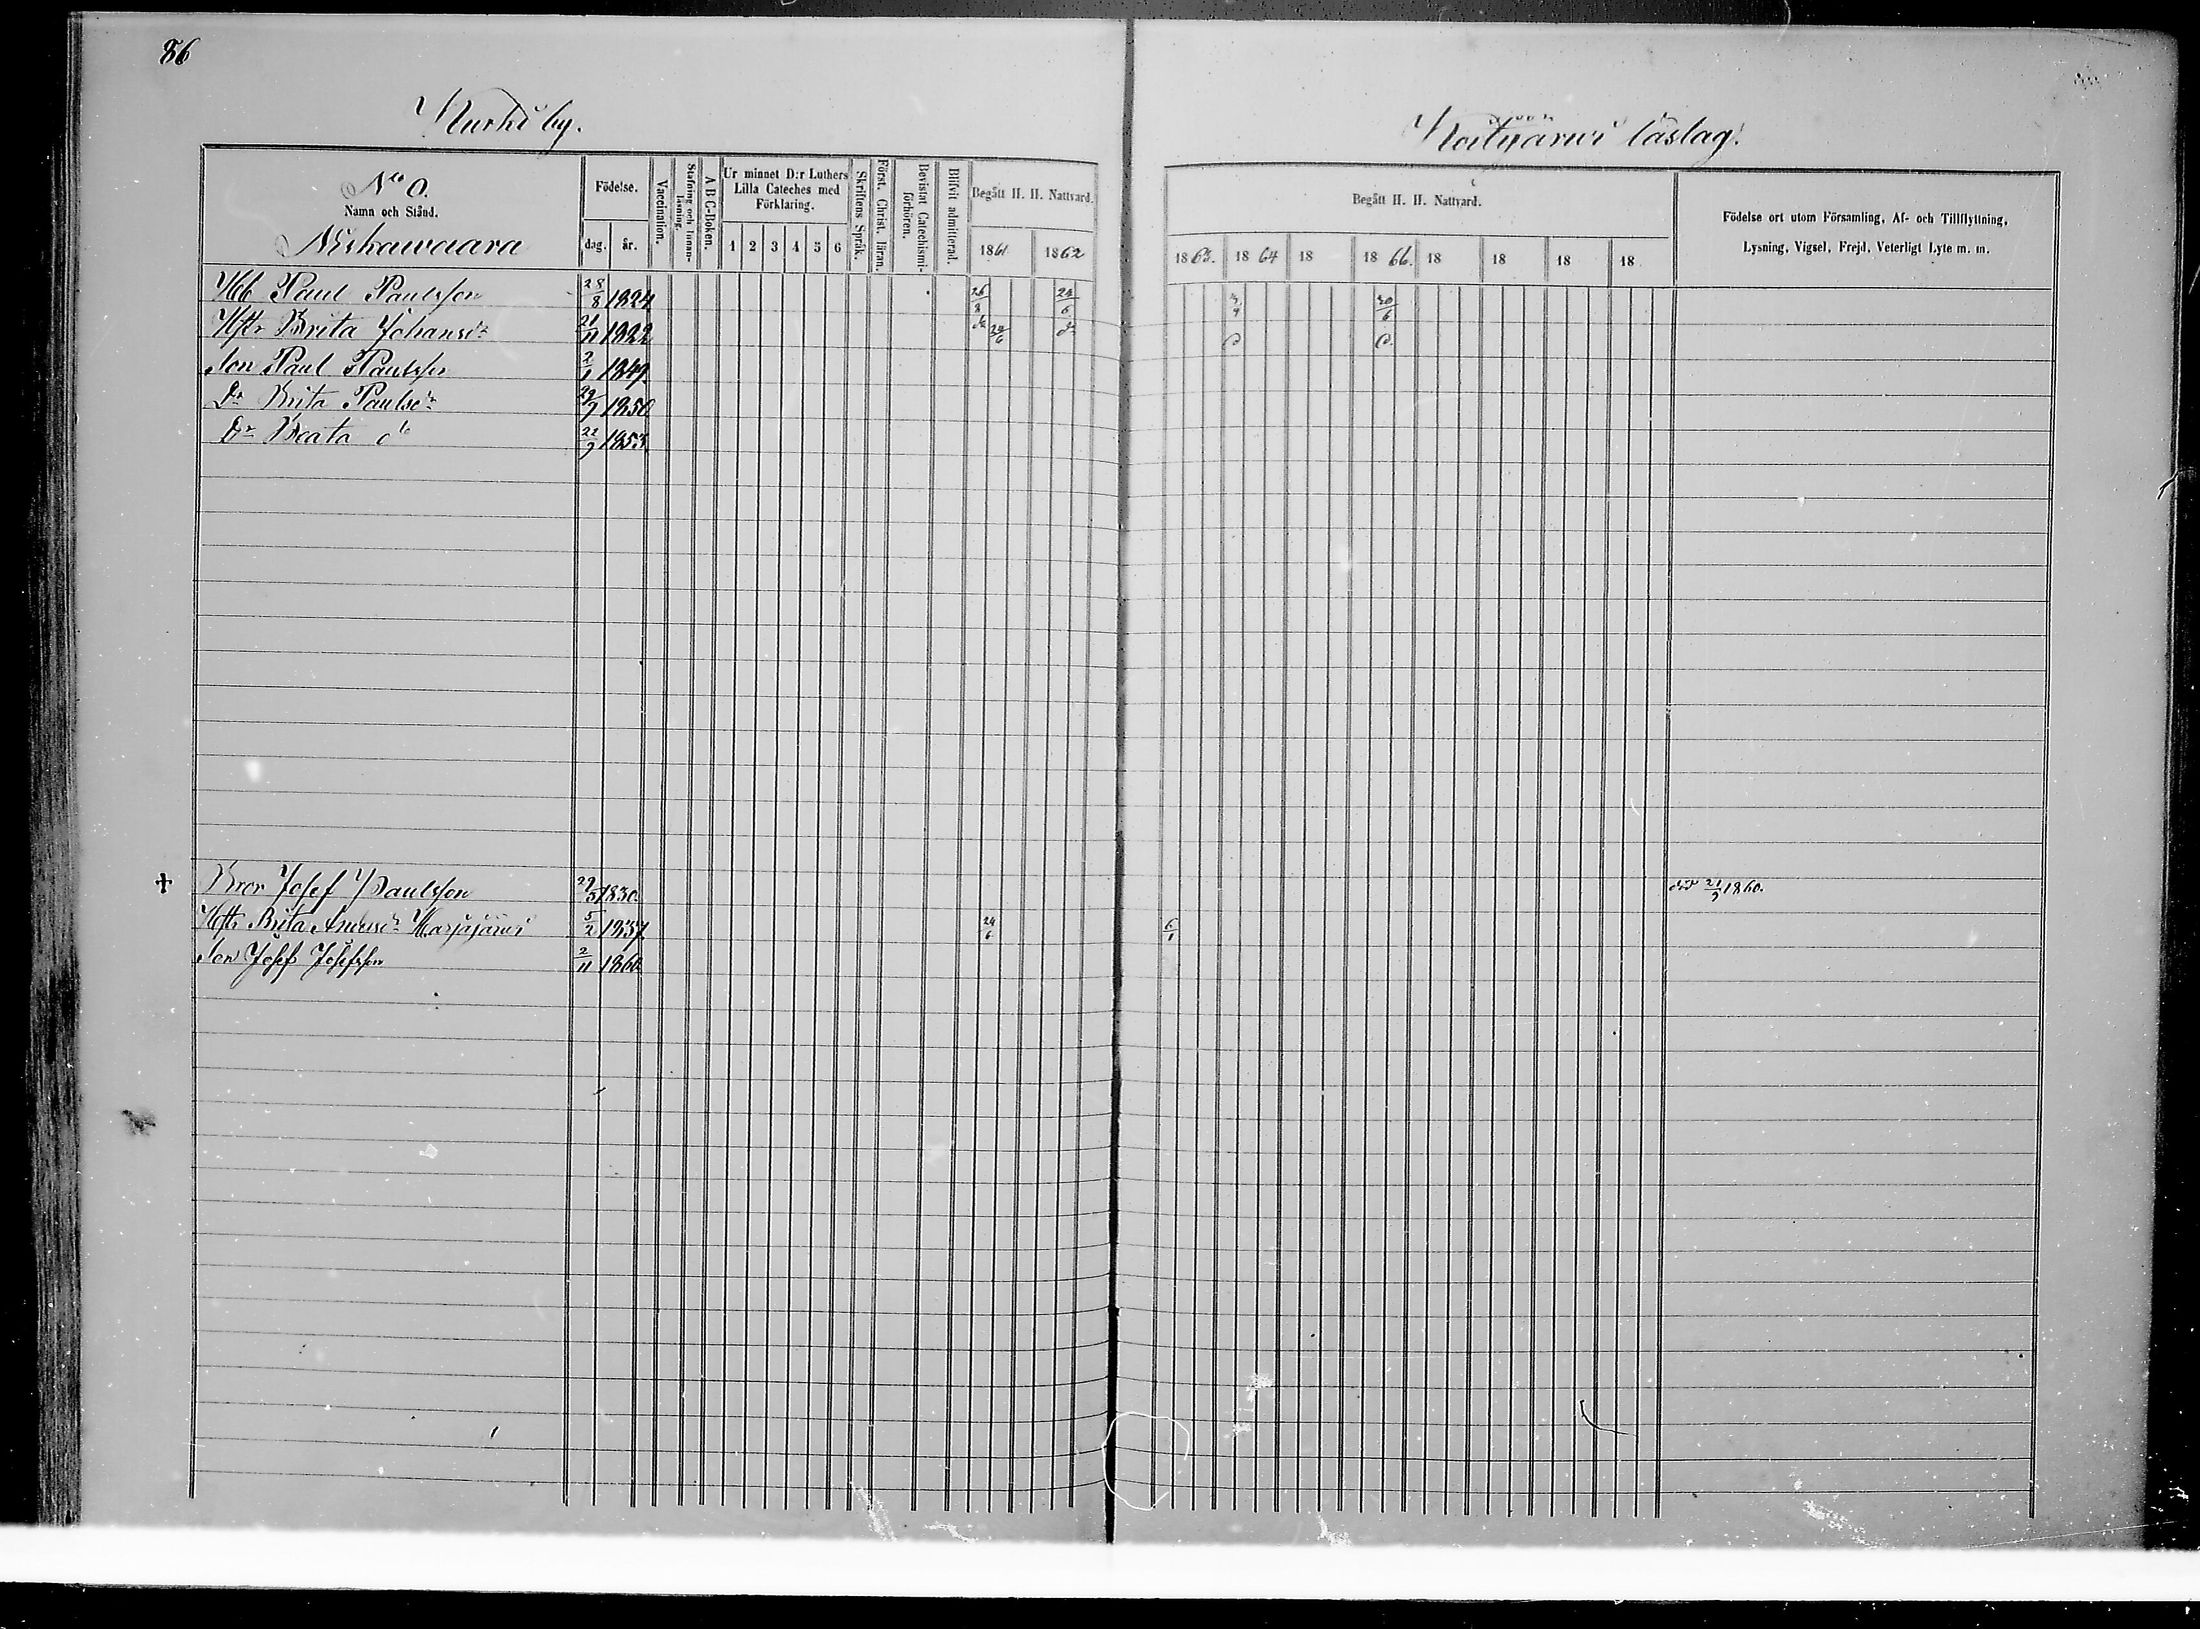 86
Murki by.
Koitijärwi läslag.
No 0.
Namn och Stånd.
Niskawaara
Födelse.
dag. år.
Vaccination.
Stafning och Innan-läsning.
A B C-Boken.
Ur minnet D:r Luthers
Lilla Cateches med
Förklaring.
1 2 3 4 5 6
Skriftens Språk.
Först. Christ. läran.
Bevistat Catechismi-förhören.
Blifvit admitterad.
Begått H. H. Nattvard.
1861 1862
Begått H. H. Nattvard.
1863. 1864 18 1866. 18 18 18 18
Födelse ort utom Församling, Af- och Tillflyttning,
Lysning, Vigsel, Frejd, Veterligt Lyte m. m.
Hb Paul Paulsson 28/8 1824 26/8 24/6 3/4 30/6
Hstr Brita Johansdr 21/11 1822 do 24/6 do
Son Paul Paulsson 2/1 1849.
Dr Brita Paulsdr 29/7 1850
Dr Beata do 22/7 1853.
Bror Josef Paulsson 29/5 1830. död 21/7 1860.
Hstr Brita Andersdr Marjajärwi 5/2 1837 24/6 6/1
Son Josef Josefsson 2/11 1860